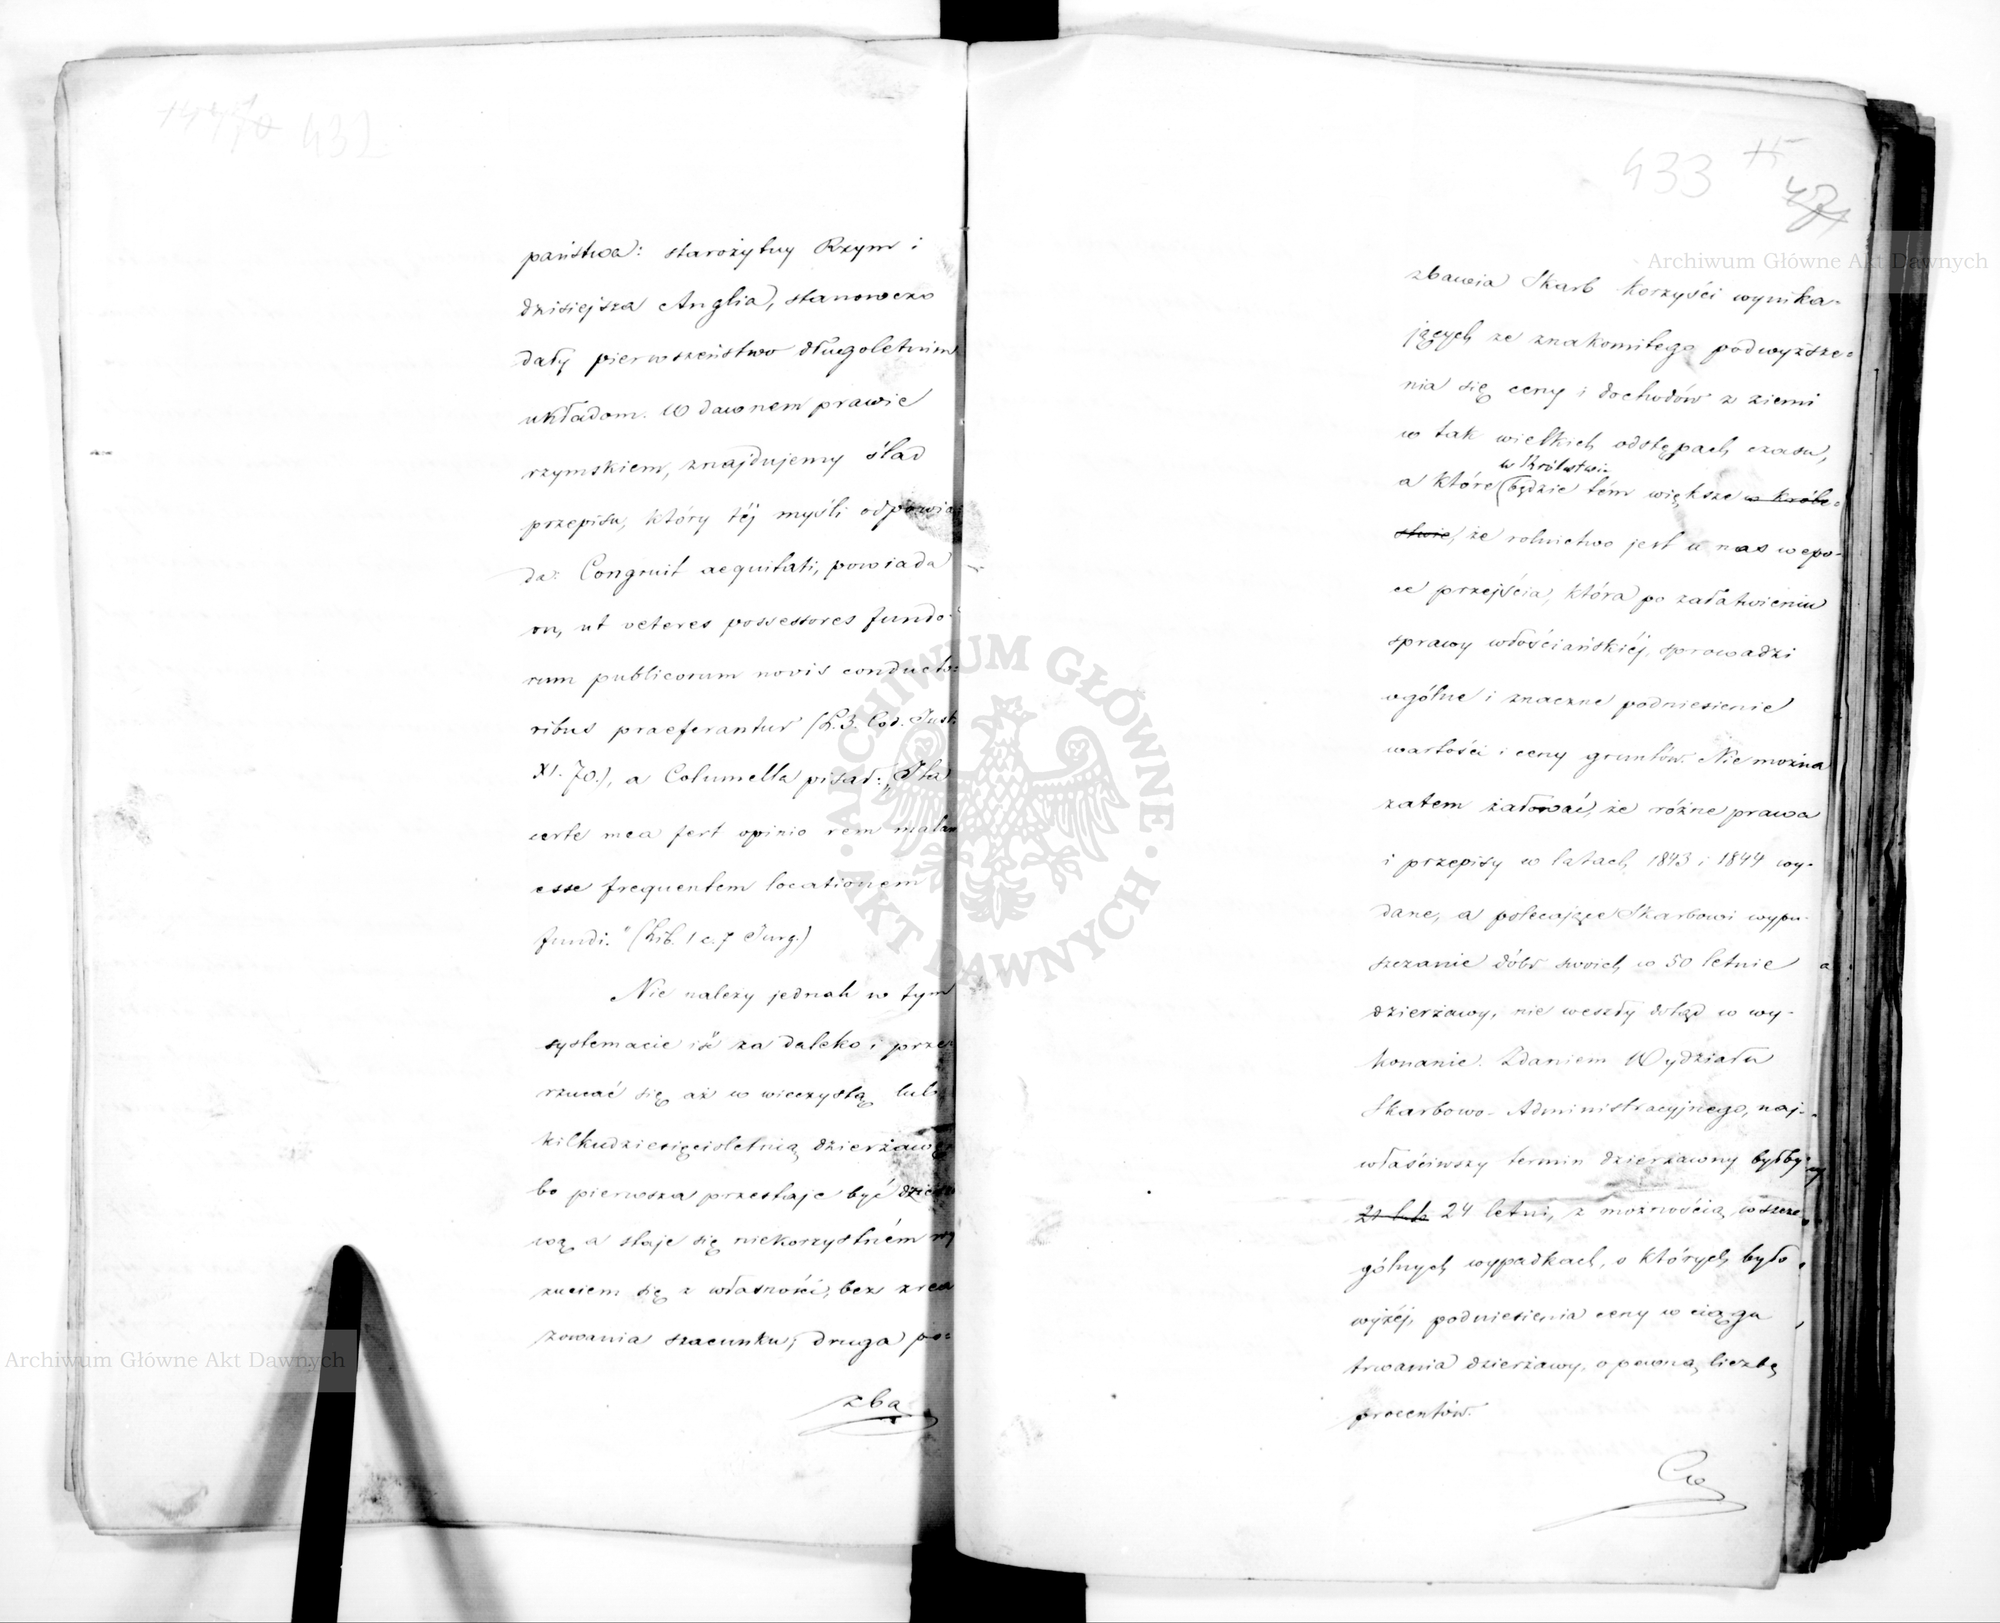 432
państwa: starożytny Rzym i
dzisiejsza Anglia, stanowczo
dały pierwszeństwo długoletnim
układom. W dawnem prawie
rzymskiem, znajdujemy ślad
przepisu, który téj myśli odpowia-
da: Congruit aequitati, powiada
on, ut veteres possessores fundo-
rum publicorum novis conducto-
ribus praeferantur (L.3. Cod. Just.
XI. 70.), a Columella pisał: „Ita
certe mea fert opinio rem malam
esse frequentem locationem
fundi." (Lib. 1 c. 7 Jurg.)
Nie należy jednak w tym
systemacie iść za daleko i prze-
rzucać się aż w wieczystą lub
kilkudziesięcioletnią dzierżawę,
bo pierwsza przestaje być dzierża
wą a staje się niekorzystném wy
zuciem się z własności, bez zrea
zowania szacunku; druga po-
zba
433
zbawia Skarb korzyści wynika-
jących ze znakomitego podwyższe-
nia się ceny i dochodów z ziemi
w tak wielkich odstępach czasu,
w Królestwie
a które będzie tém większe w Króle-
stwie, że rolnictwo jest u nas w epo-
ce przejścia, która po załatwieniu
sprawy włościańskiéj, sprowadzi
ogólne i znaczne podniesienie
wartości i ceny gruntów. Nie można
zatem żałować, że różne prawa
i przepisy w latach 1843 i 1844 wy-
dane, a polecające Skarbowi wypu-
szczanie dóbr swoich w 50 letnie
dzierżawy, nie weszły dotąd w wy-
konanie. Zdaniem Wydziału
Skarbowo-Administracyjnego, naj-
właściwszy termin dzierżawny byłby
21 lub 24 letni, z możnością w szcze-
gólnych wypadkach, o których było
wyżéj, podniesienia ceny w ciągu
trwania dzierżawy, o pewną liczbę
procentów.
Archiwum Główne Akt Dawnych
Archiwum Główne Akt Dawnych
ARCHIWUM GŁÓWNE
AKT DAWNYCH